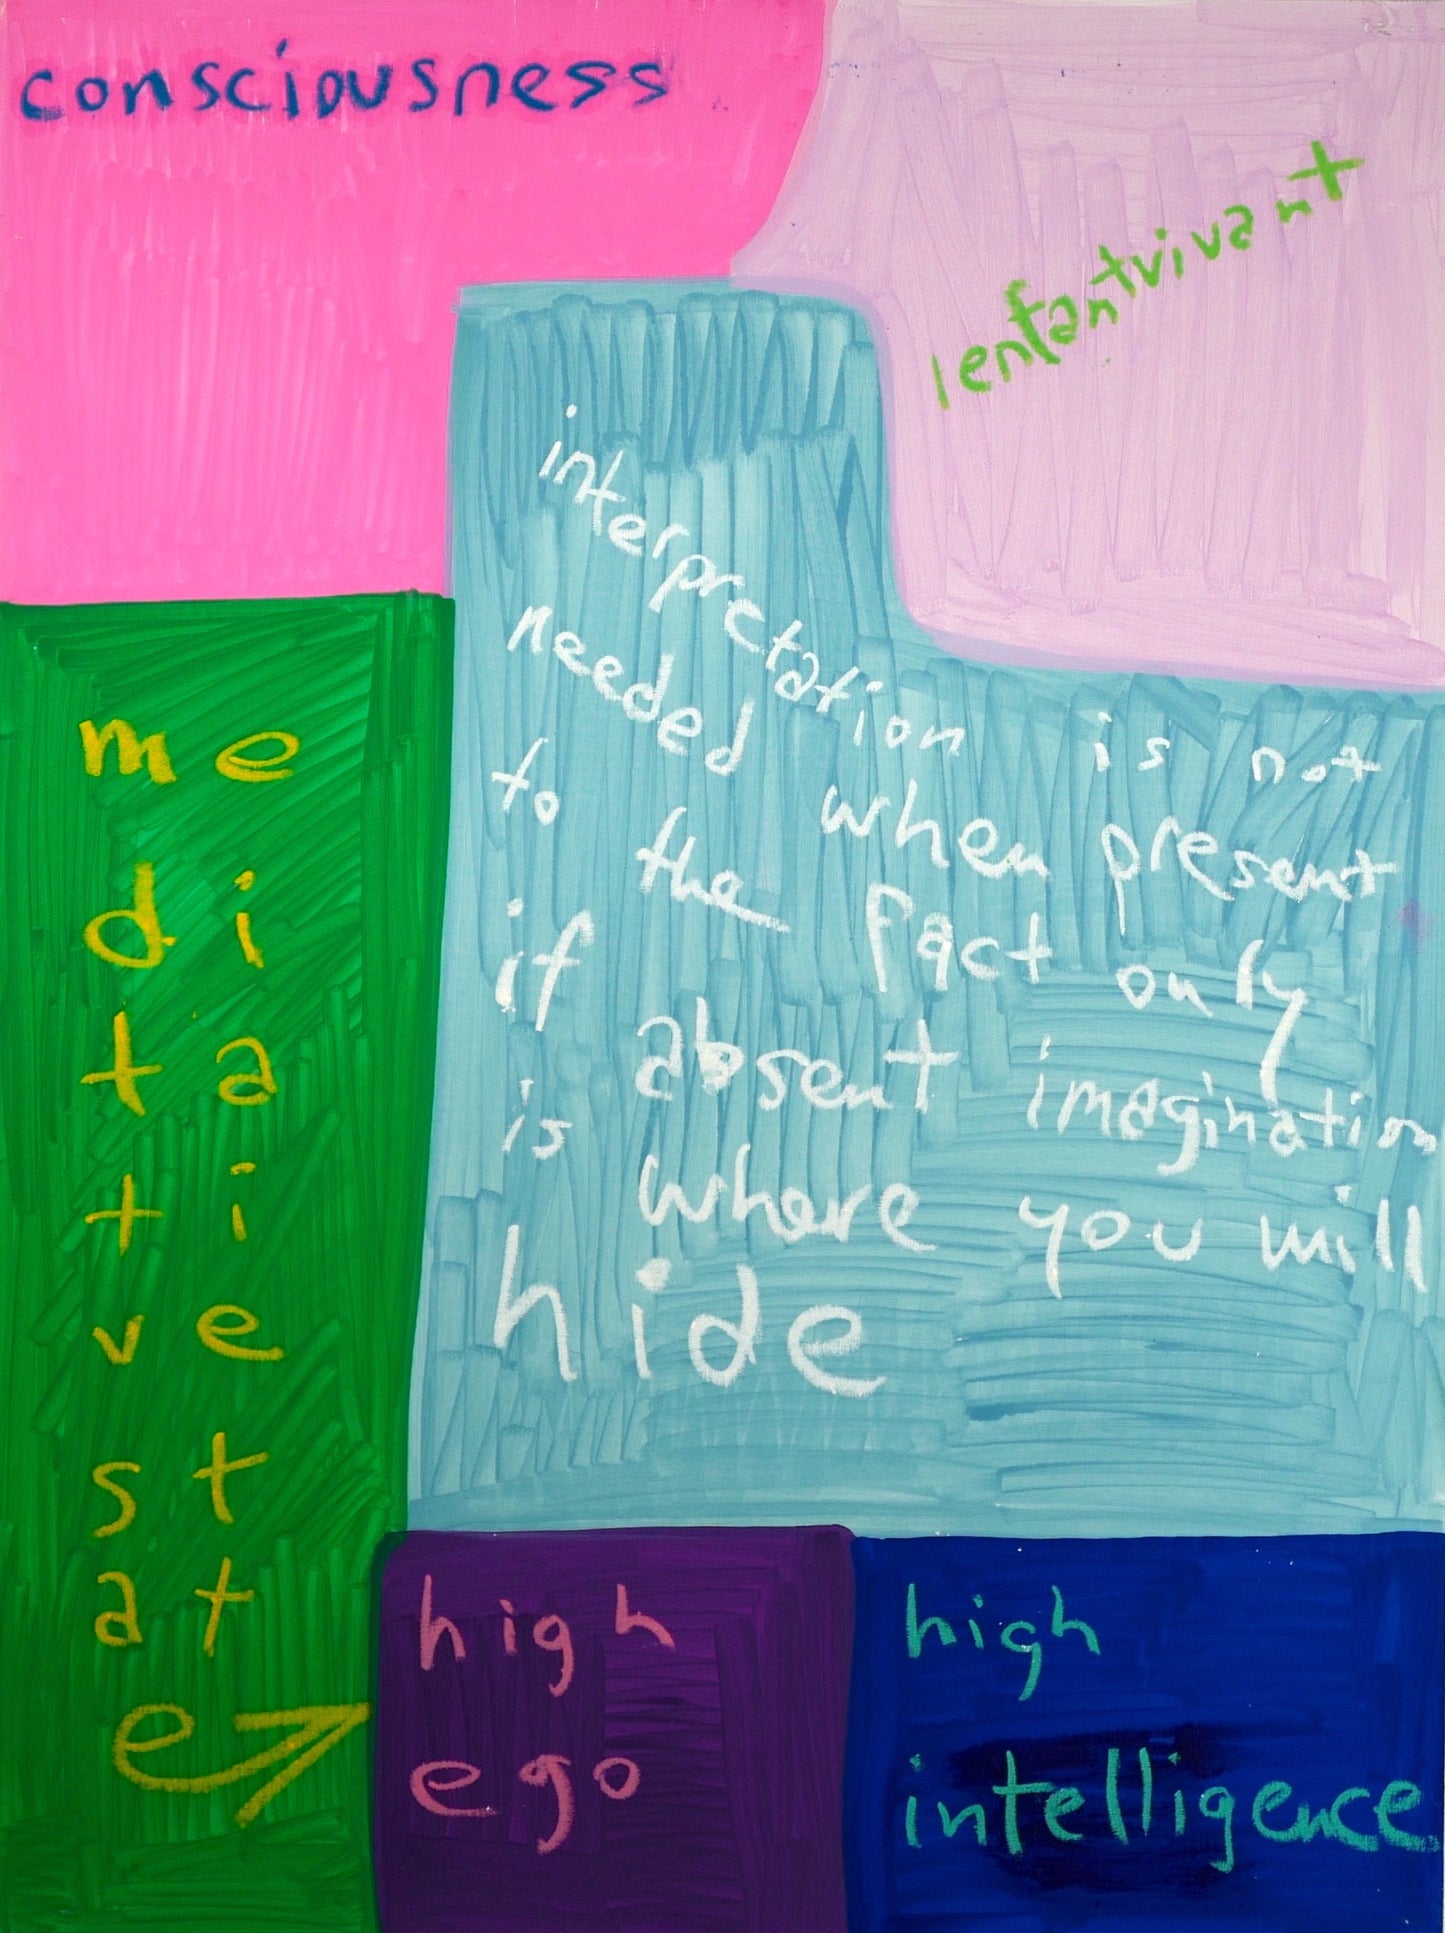 consciousness
lenfantvivant
interpretation is not
needed when present
to the fact only
if absent imagination
is where you will
hide
me
di
ta
ti
ve
st
at
e
high
ego
high
intelligence